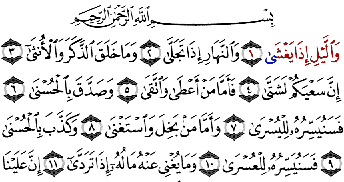 بِسْمِ اللَّهِ الرَّحْمَٰنِ الرَّحِيمِ
وَالَّيْلِ إِذَا يَغْشَىٰ ١ وَالنَّهَارِ إِذَا تَجَلَّىٰ ٢ وَمَا خَلَقَ الذَّكَرَ وَالْأُنثَىٰ ٣
إِنَّ سَعْيَكُمْ لَشَتَّىٰ ٤ فَأَمَّا مَنْ أَعْطَىٰ وَاتَّقَىٰ ٥ وَصَدَّقَ بِالْحُسْنَىٰ ٦
فَسَنُيَسِّرُهُ لِلْيُسْرَىٰ ٧ وَأَمَّا مَنْ بَخِلَ وَاسْتَغْنَىٰ ٨ وَكَذَّبَ بِالْحُسْنَىٰ
٩ فَسَنُيَسِّرُهُ لِلْعُسْرَىٰ ١٠ وَمَا يُغْنِي عَنْهُ مَالُهُ إِذَا تَرَدَّىٰ ١١ إِنَّ عَلَيْنَا